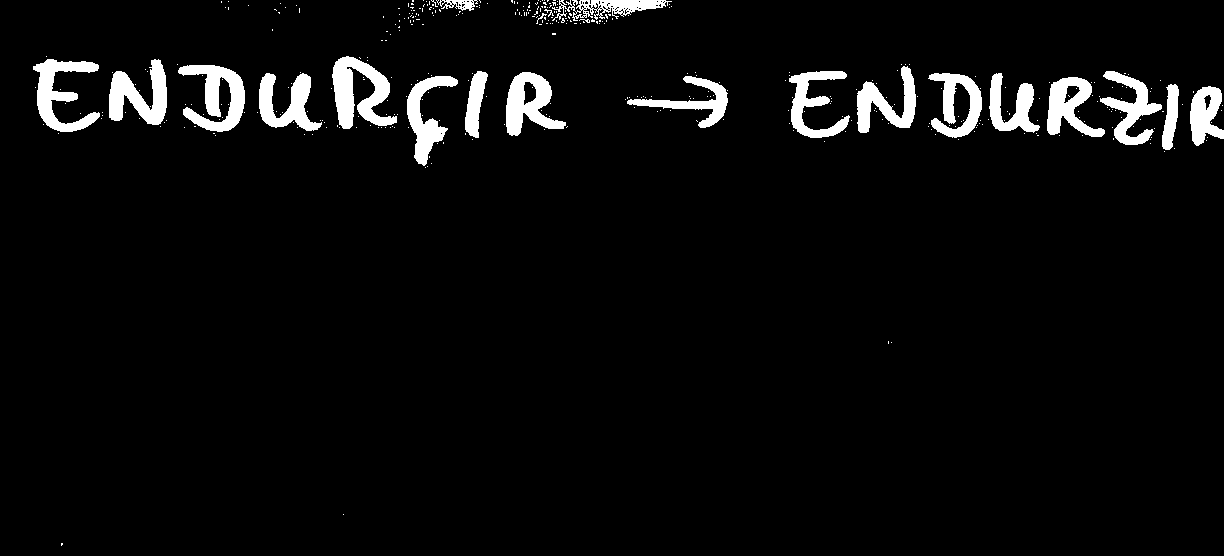 ENDURÇIR → ENDURZIR